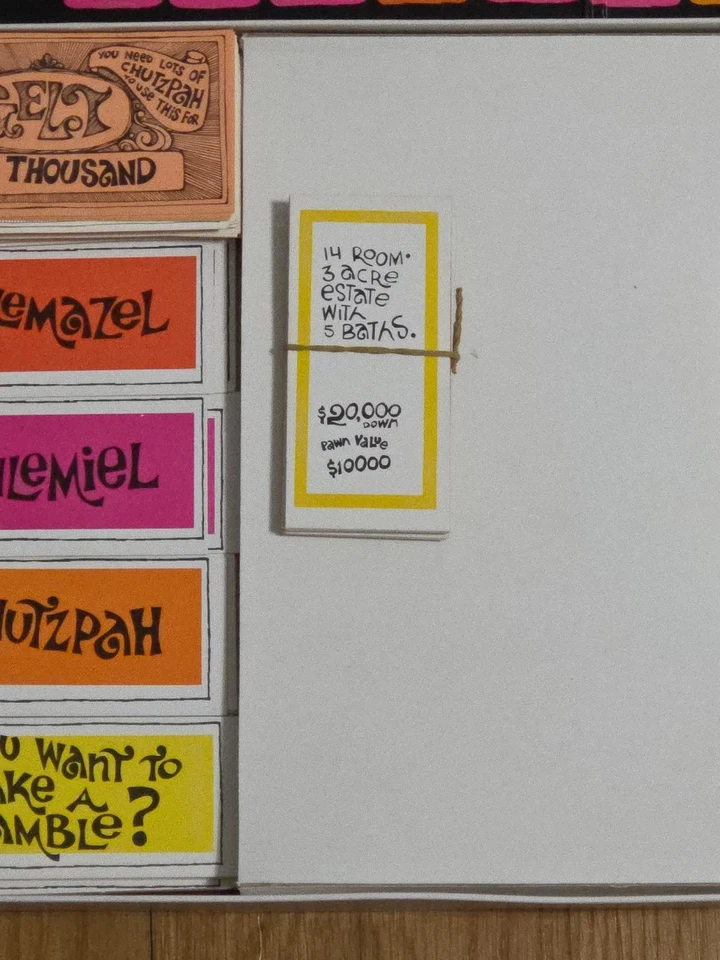 YOU NEED LOTS OF
CHUTZPAH
TO USE THIS FOR
GELT
THOUSAND
LEMAZEL
LEMIEL
HUTZPAH
U WANT TO
AKE A
AMBLE?
14 ROOM·
3 aCRe
eSTaTe
WiTh
5 BaThS.
$20,000
DOWN
Pawn Value
$10000